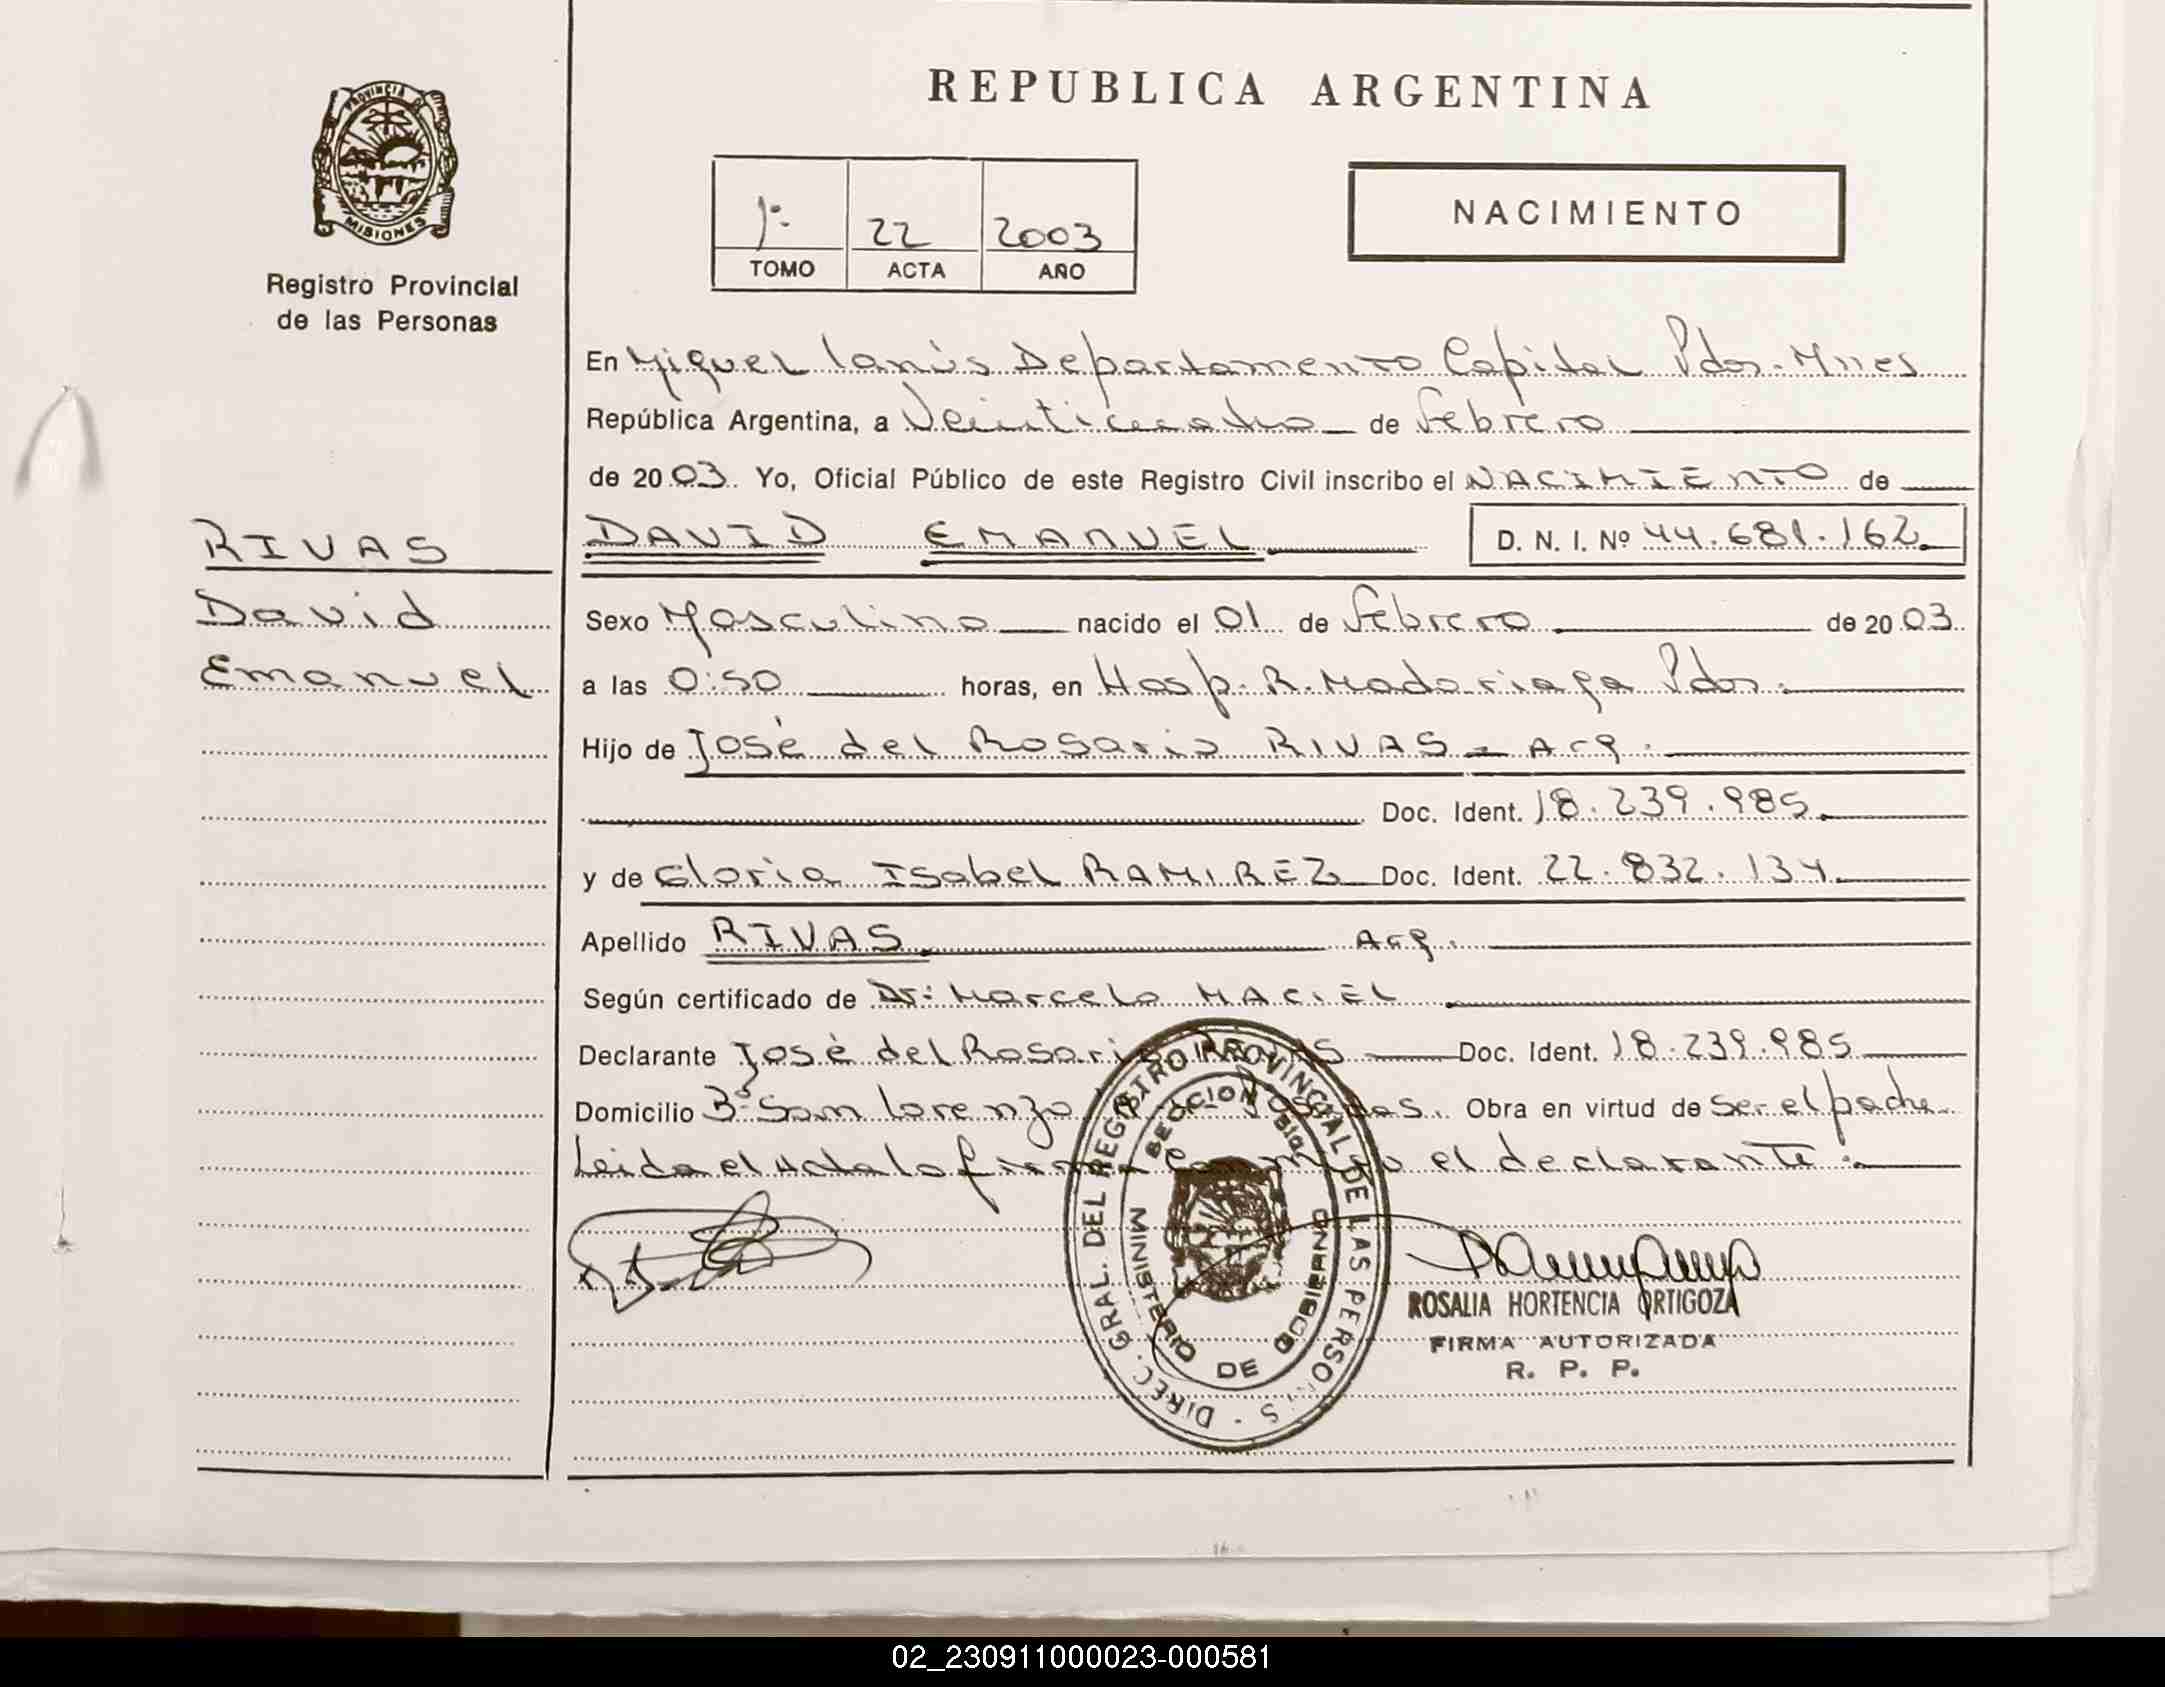 REPUBLICA ARGENTINA
PROVINCIA DE MISIONES
Registro Provincial
de las Personas
1º 22 2003
TOMO ACTA AÑO
NACIMIENTO
En Miguel Lanús Departamento Capital Pdas. Mnes
República Argentina, a Veinticuatro de Febrero
de 2003. Yo, Oficial Público de este Registro Civil inscribo el NACIMIENTO de
RIVAS
David
Emanuel
DAVID EMANUEL D. N. I. Nº 44.681.162
Sexo Masculino nacido el 01 de Febrero de 2003.
a las 0:50 horas, en Hosp. R. Madariaga Pdas.
Hijo de José del Rosario RIVAS - Arg.
Doc. Ident. 18.239.985
y de Gloria Isabel RAMIREZ Doc. Ident. 22.832.134
Apellido RIVAS Arg.
Según certificado de Dr: Marcelo MACIEL
Declarante José del Rosario RIVAS Doc. Ident. 18.239.985
Domicilio Bº San Lorenzo Posadas. Obra en virtud de Ser el padre
Leida el Acta la firma conmigo el declarante.
DIREC. GRAL. DEL REGISTRO PROVINCIAL DE LAS PERSONAS
MINISTERIO DE GOBIERNO
ROSALIA HORTENCIA ORTIGOZA
FIRMA AUTORIZADA
R. P. P.
02_230911000023-000581